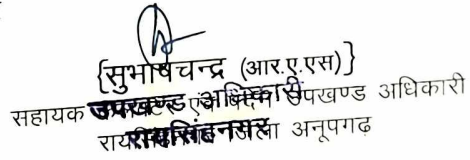 {सुभाषचन्द्र (आर.ए.एस)}
सहायक उपखण्ड अधिकारी उपखण्ड अधिकारी
रायसिंहनगर जिला अनूपगढ़